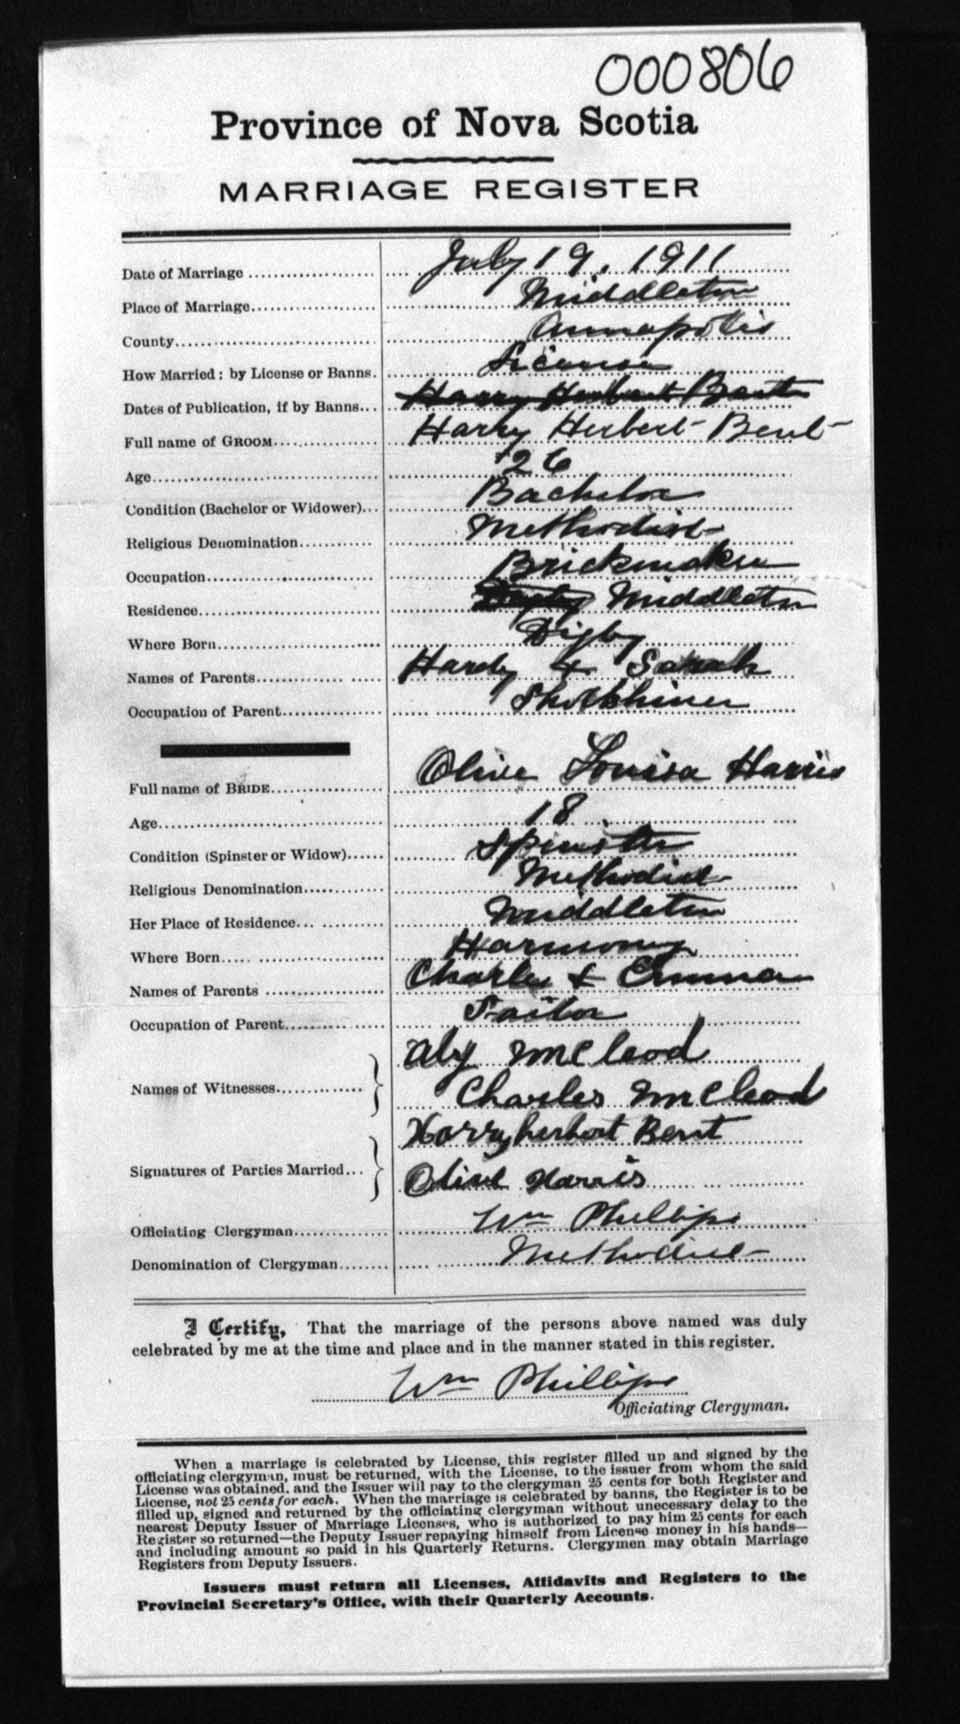 000806
Province of Nova Scotia
MARRIAGE REGISTER
Date of Marriage July 19, 1911
Place of Marriage Middleton
County Annapolis
How Married: by License or Banns. License
Dates of Publication, if by Banns Harry Herbert Bent
Full name of GROOM Harry Herbert Bent
Age 26
Condition (Bachelor or Widower) Bachelor
Religious Denomination Methodist
Occupation Brickmaker
Residence Digby Middleton
Where Born Digby
Names of Parents Hardy & Sarah
Occupation of Parent
Full name of BRIDE Olive Louisa Harris
Age 18
Condition (Spinster or Widow) Spinster
Religious Denomination Methodist
Her Place of Residence Middleton
Where Born Harmony
Names of Parents Charles & Emma
Occupation of Parent Sailor
Names of Witnesses Aly McLeod
Charles McLeod
Signatures of Parties Married Harry herbert Bent
Olive Harris
Officiating Clergyman Wm Phillips
Denomination of Clergyman Methodist
I Certify, That the marriage of the persons above named was duly
celebrated by me at the time and place and in the manner stated in this register.
Wm Phillips
Officiating Clergyman.
When a marriage is celebrated by License, this register filled up and signed by the
officiating clergyman, must be returned, with the License, to the issuer from whom the said
License was obtained, and the Issuer will pay to the clergyman 25 cents for both Register and
License, not 25 cents for each. When the marriage is celebrated by banns, the Register is to be
filled up, signed and returned by the officiating clergyman without unnecessary delay to the
nearest Deputy Issuer of Marriage Licenses, who is authorized to pay him 25 cents for each
Register so returned—the Deputy Issuer repaying himself from License money in his hands—
and including amount so paid in his Quarterly Returns. Clergymen may obtain Marriage
Registers from Deputy Issuers.
Issuers must return all Licenses, Affidavits and Registers to the
Provincial Secretary's Office, with their Quarterly Accounts.